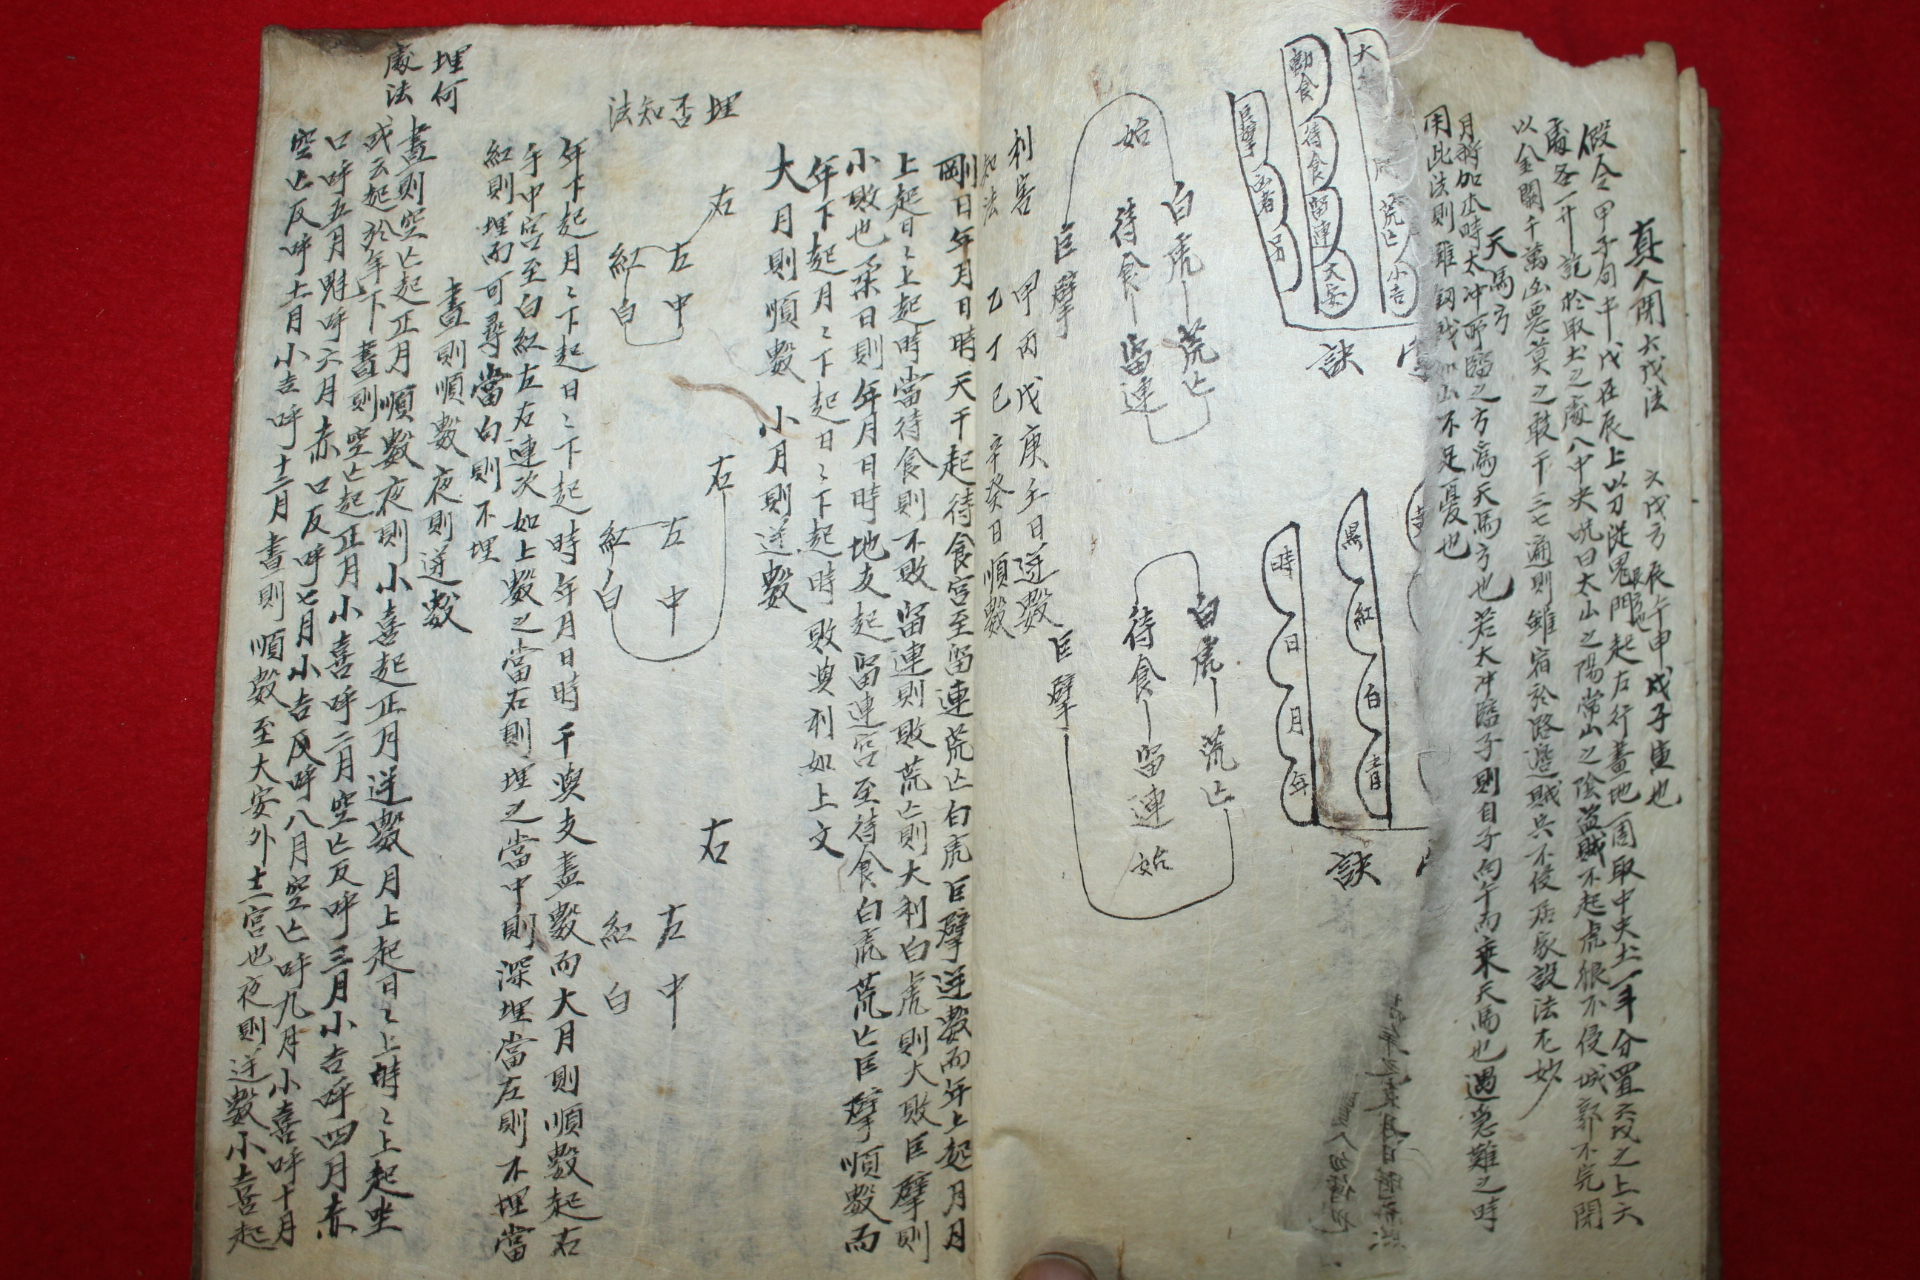 真人閉六戊法
六戊方辰午申戌子寅也
假令甲子旬中戊在辰上以刀從鬼門起左行畫地一周取中央土一斗分置六戊之上六
處各一升訖於取土之處八中央呪曰太山之陽常山之陰盜賊不起虎狼不侵城郭不完閉
以金關千萬凶惡莫之敢干三七遍則雖宿於路邊賊兵不侵居家設法尤妙
天馬方
月將加正時太冲所臨之方爲天馬方也若太冲臨子則自子向午而乘天馬也遇急難之時
用此法則雖釼戟如山不足憂也
大
荒亡
小吉
朝食
待食
留連
大安
巨擘
訣
黑
紅
白
青
時
日
月
年
訣
始
待食
留連
白虎
荒亡
巨擘
白虎
荒亡
待食
留連
始
巨擘
利害
知法
甲丙戊庚壬日逆數
乙丁己辛癸日順數
剛日年月日時天干起待食宮至留連荒亡白虎巨擘逆數而年上起月月
上起日日上起時當待食則不敗留連則敗荒亡則大利白虎則大敗巨擘則
小敗也柔日則年月日時地支起留連宮至待食白虎荒亡巨擘順數而
年下起月月下起日日下起時敗與利如上文
大月則順數 小月則逆數
埋否知法
右
左
中
紅
白
右
左
中
紅
白
右
左
中
紅
白
年下起月月下起日日下起時年月日時干與支盡數而大月則順數起右
手中宮至白紅左右連次如上數之當右則埋之當中則深埋當左則不埋當
紅則埋而可尋當白則不埋
埋何
處法
晝則順數夜則逆數
晝則空亡起正月順數夜則小喜起正月逆數月上起日日上時時上起坐
或云起於年下晝則空亡起正月小喜呼二月空亡反呼三月小吉呼四月赤
口呼五月雖呼六月赤口反呼七月小吉反呼八月空亡呼九月小喜呼十月
空亡反呼十一月小吉呼十二月晝則順數至大安外十二宮也夜則逆數小喜起